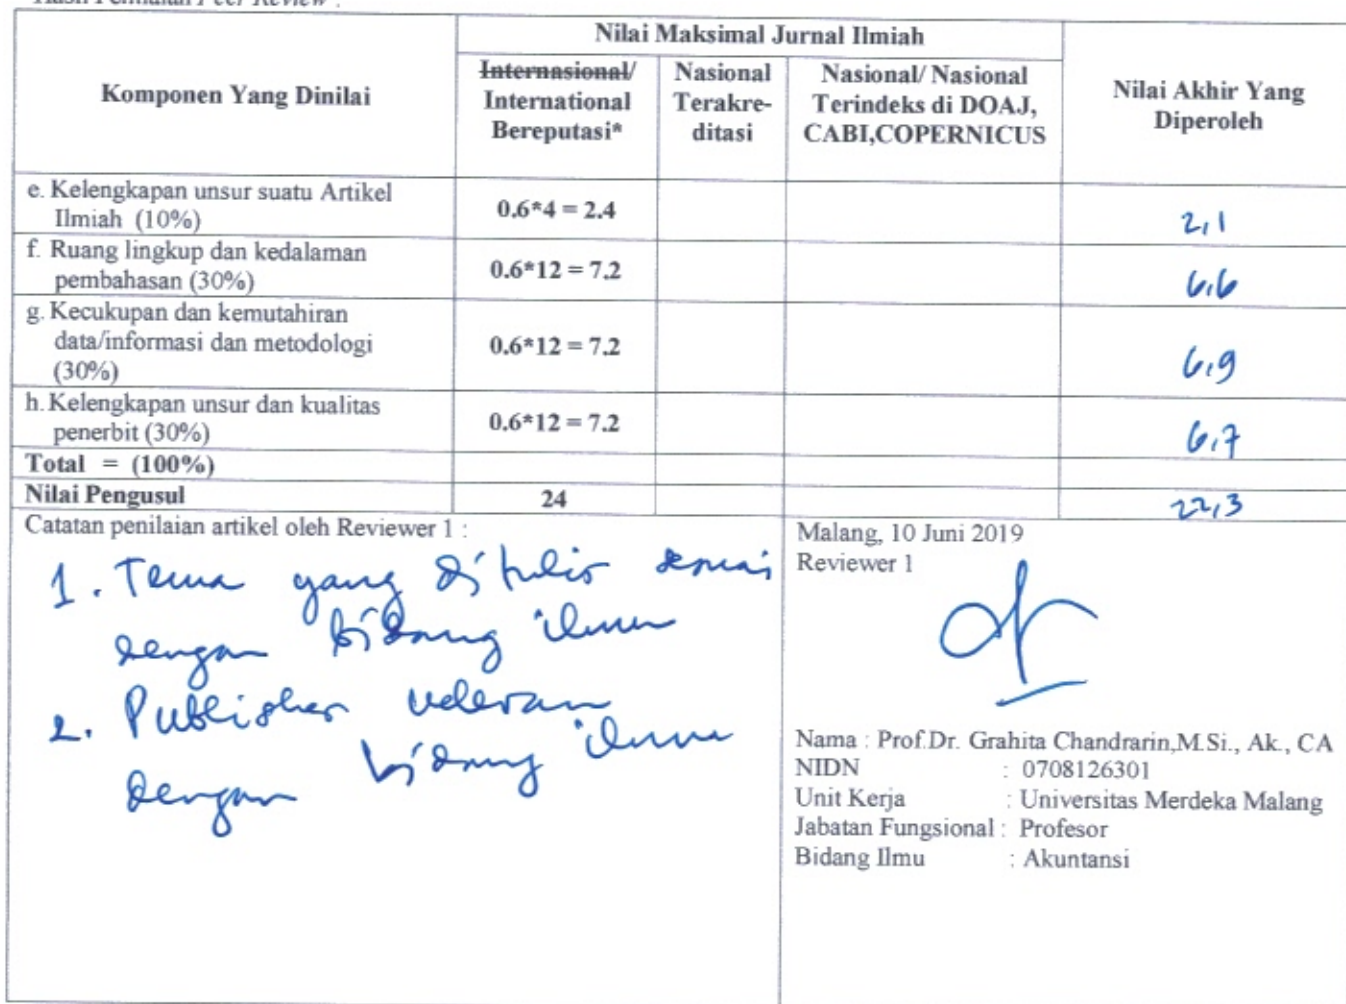 Hasil Penilaian Peer Review :
Nilai Maksimal Jurnal Ilmiah
Komponen Yang Dinilai
Internasional/
International
Bereputasi*
Nasional
Terakre-
ditasi
Nasional/ Nasional
Terindeks di DOAJ,
CABI,COPERNICUS
Nilai Akhir Yang
Diperoleh
e. Kelengkapan unsur suatu Artikel
Ilmiah (10%)
0.6*4 = 2.4
2,1
f. Ruang lingkup dan kedalaman
pembahasan (30%)
0.6*12 = 7.2
6,6
g. Kecukupan dan kemutahiran
data/informasi dan metodologi
(30%)
0.6*12 = 7.2
6,9
h. Kelengkapan unsur dan kualitas
penerbit (30%)
0.6*12 = 7.2
6,7
Total = (100%)
Nilai Pengusul
24
22,3
Catatan penilaian artikel oleh Reviewer 1 :
1. Tema yang ditulis sesuai
dengan bidang ilmu
2. Publisher relevan
dengan bidang ilmu
Malang, 10 Juni 2019
Reviewer 1
Nama : Prof.Dr. Grahita Chandrarin,M.Si., Ak., CA
NIDN : 0708126301
Unit Kerja : Universitas Merdeka Malang
Jabatan Fungsional : Profesor
Bidang Ilmu : Akuntansi